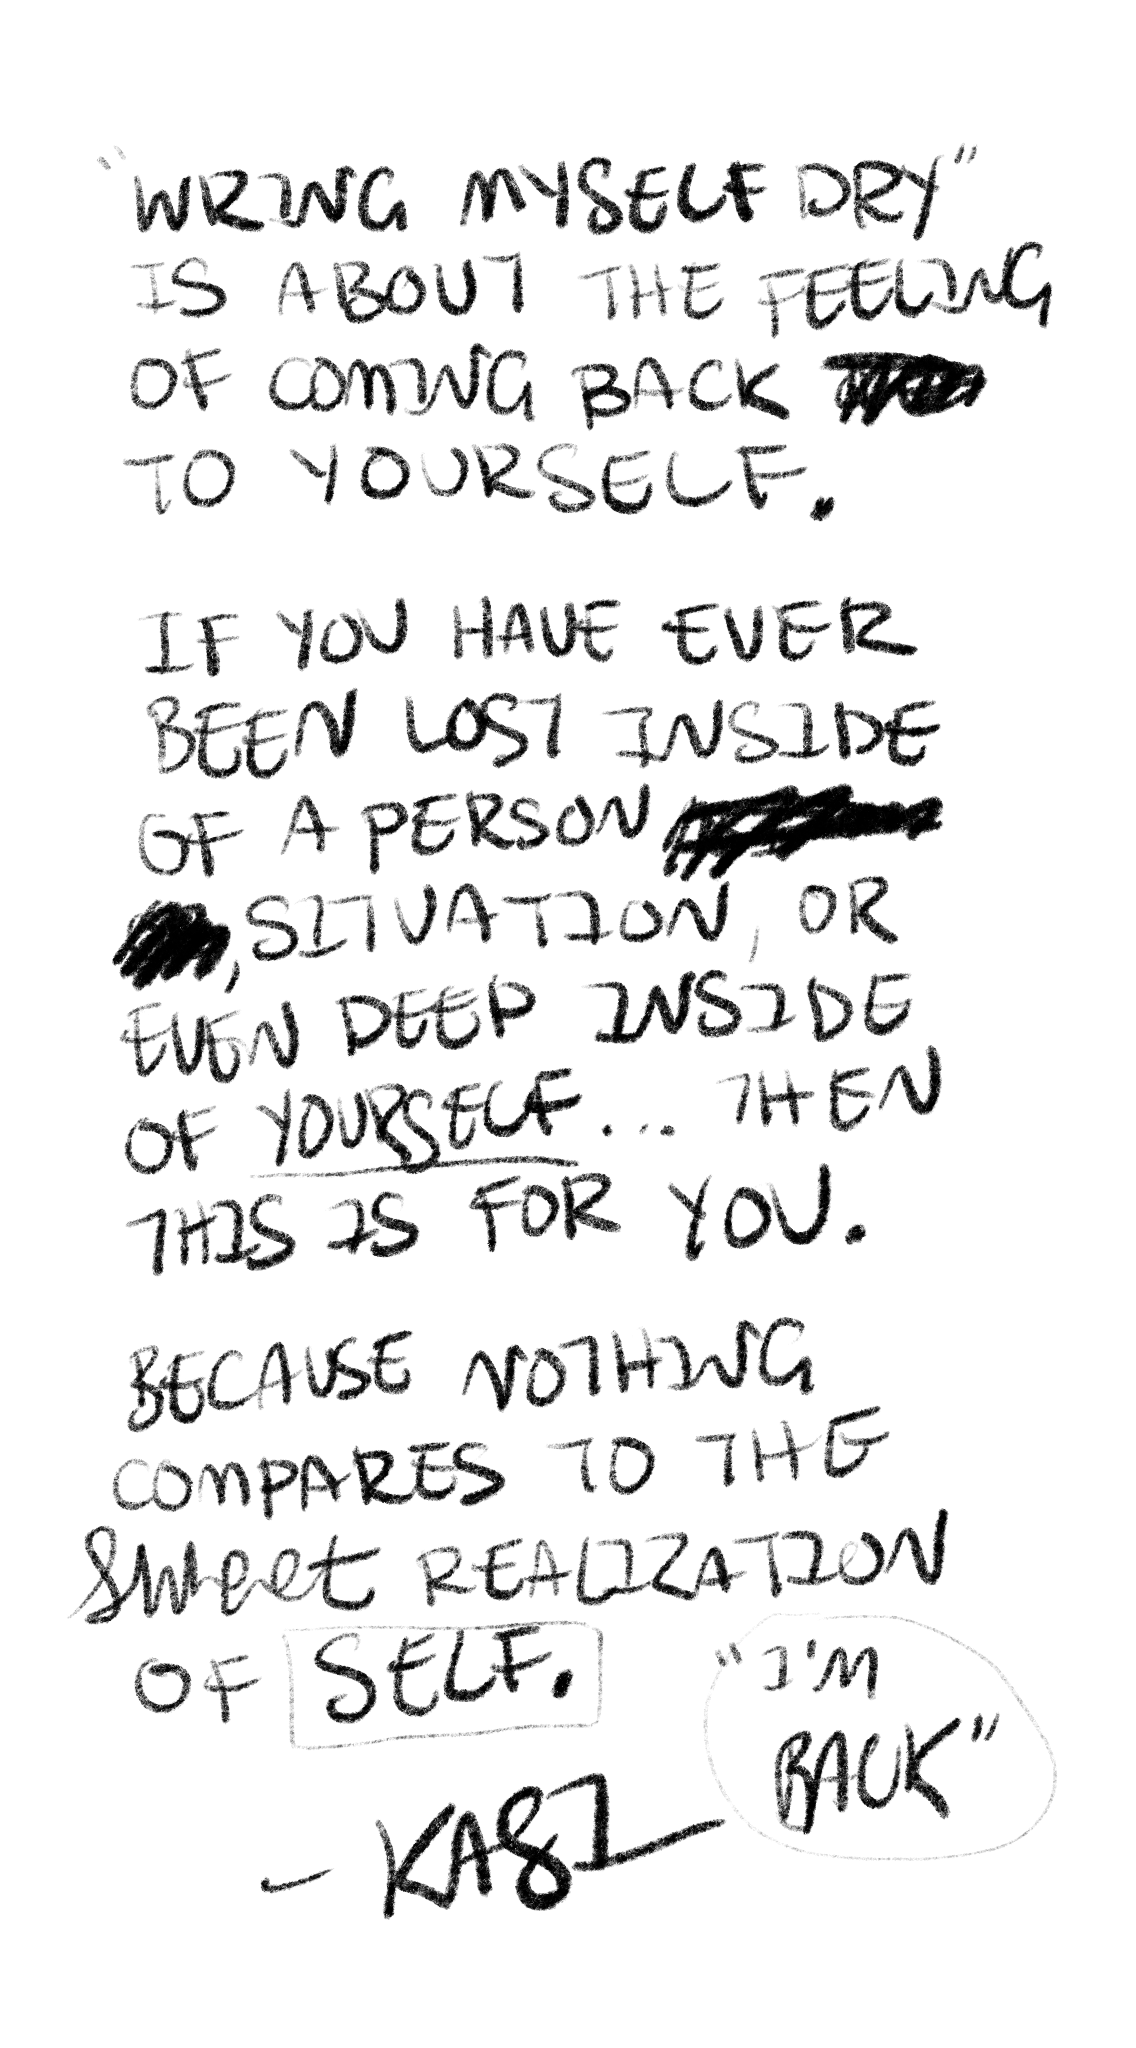 "WRING MYSELF DRY"
IS ABOUT THE FEELING
OF COMING BACK
TO YOURSELF.
IF YOU HAVE EVER
BEEN LOST INSIDE
OF A PERSON
, SITUATION, OR
EVEN DEEP INSIDE
OF YOURSELF... THEN
THIS IS FOR YOU.
BECAUSE NOTHING
COMPARES TO THE
Sweet REALIZATION
OF SELF.
"I'M
BACK"
- KASI